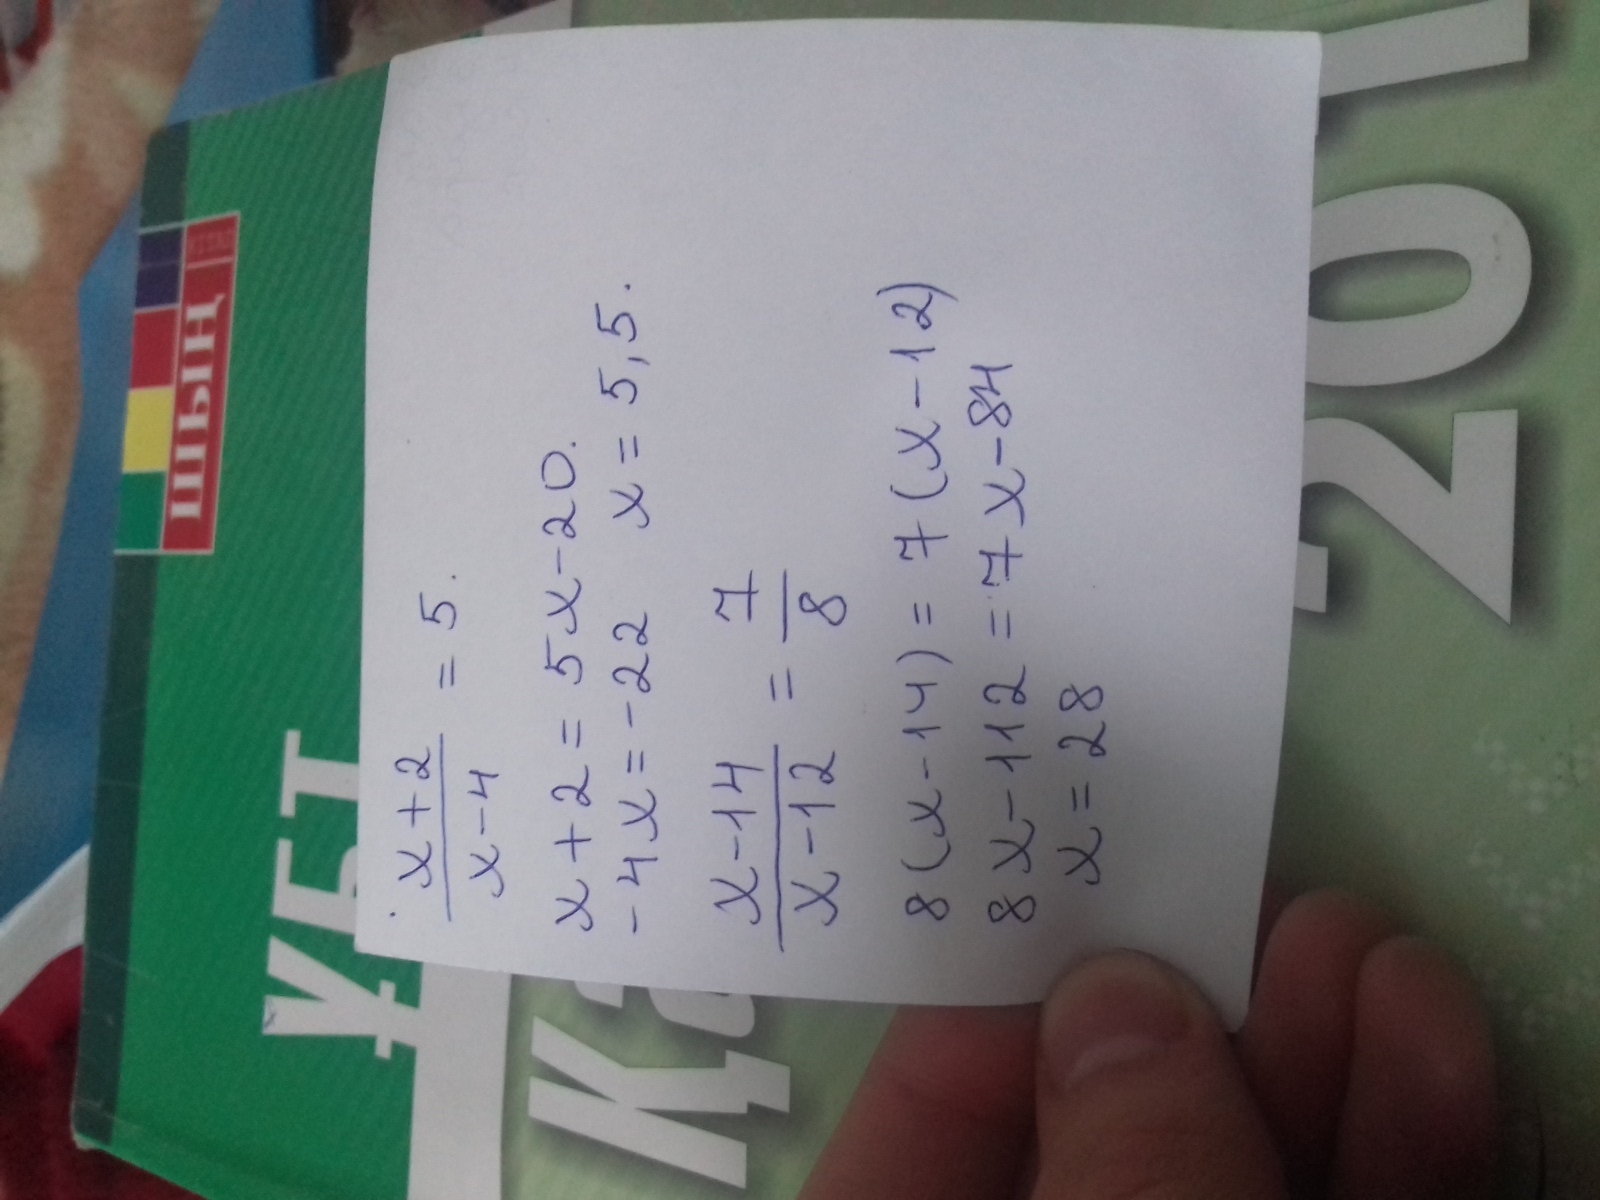 x+2/x-4 = 5.
x+2=5x-20.
-4x=-22 x=5,5.
x-14/x-12 = 7/8
8(x-14)=7(x-12)
8x-112=7x-84
x=28
ШЫҢ
КІТАП
ҰБТ
201